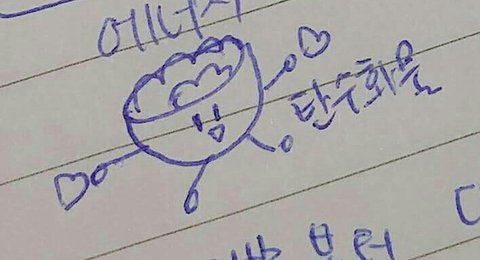 에너지
탄수화물
부터